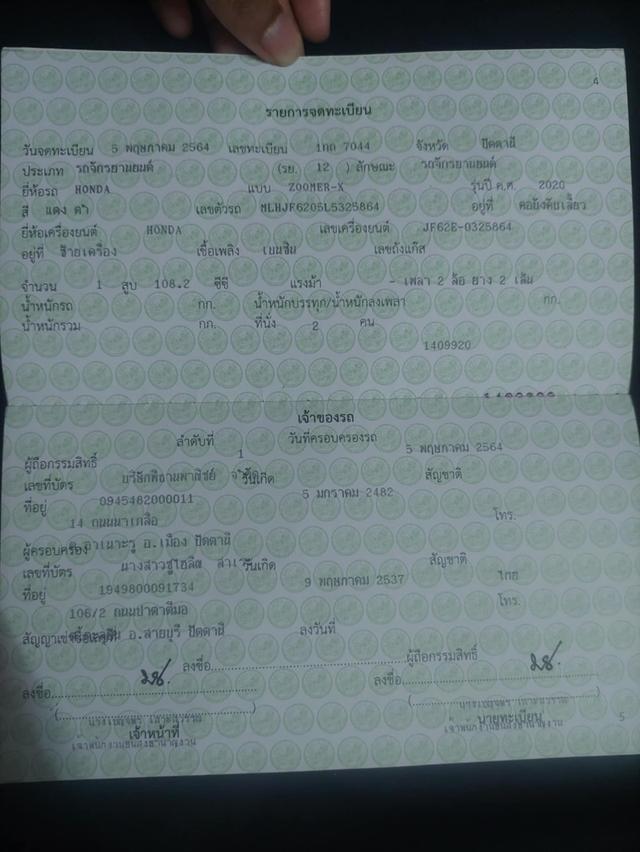 4
รายการจดทะเบียน
วันจดทะเบียน 5 พฤษภาคม 2564 เลขทะเบียน 1กถ 7044 จังหวัด ปัตตานี
ประเภท รถจักรยานยนต์ (รย. 12 ) ลักษณะ รถจักรยานยนต์
ยี่ห้อรถ HONDA แบบ ZOOMER-X รุ่นปี ค.ศ. 2020
สี แดง ดำ เลขตัวรถ MLHJF6205L5325864 อยู่ที่ คอบังคับเลี้ยว
ยี่ห้อเครื่องยนต์ HONDA เลขเครื่องยนต์ JF62E-0325864
อยู่ที่ ซ้ายเครื่อง เชื้อเพลิง เบนซิน เลขถังแก๊ส
จำนวน 1 สูบ 108.2 ซีซี แรงม้า - เพลา 2 ล้อ ยาง 2 เส้น
น้ำหนักรถ กก. น้ำหนักบรรทุก/น้ำหนักลงเพลา กก.
น้ำหนักรวม กก. ที่นั่ง 2 คน
1409920
เจ้าของรถ
ลำดับที่ 1 วันที่ครอบครองรถ 5 พฤษภาคม 2564
ผู้ถือกรรมสิทธิ์ บริษัทพิธานพาณิชย์
เลขที่บัตร 0945482000011 วันเกิด 5 มกราคม 2482 สัญชาติ
ที่อยู่ 14 ถนนนาเกลือ โทร.
อ.เมือง ปัตตานี
ผู้ครอบครอง
เลขที่บัตร 1949800091734 วันเกิด 9 พฤษภาคม 2537 สัญชาติ ไทย
ที่อยู่ 106/2 โทร.
อ.สายบุรี ปัตตานี
ลงวันที่
ลงชื่อ ผู้ถือกรรมสิทธิ์
ลงชื่อ ลงชื่อ
เจ้าหน้าที่ นายทะเบียน
5